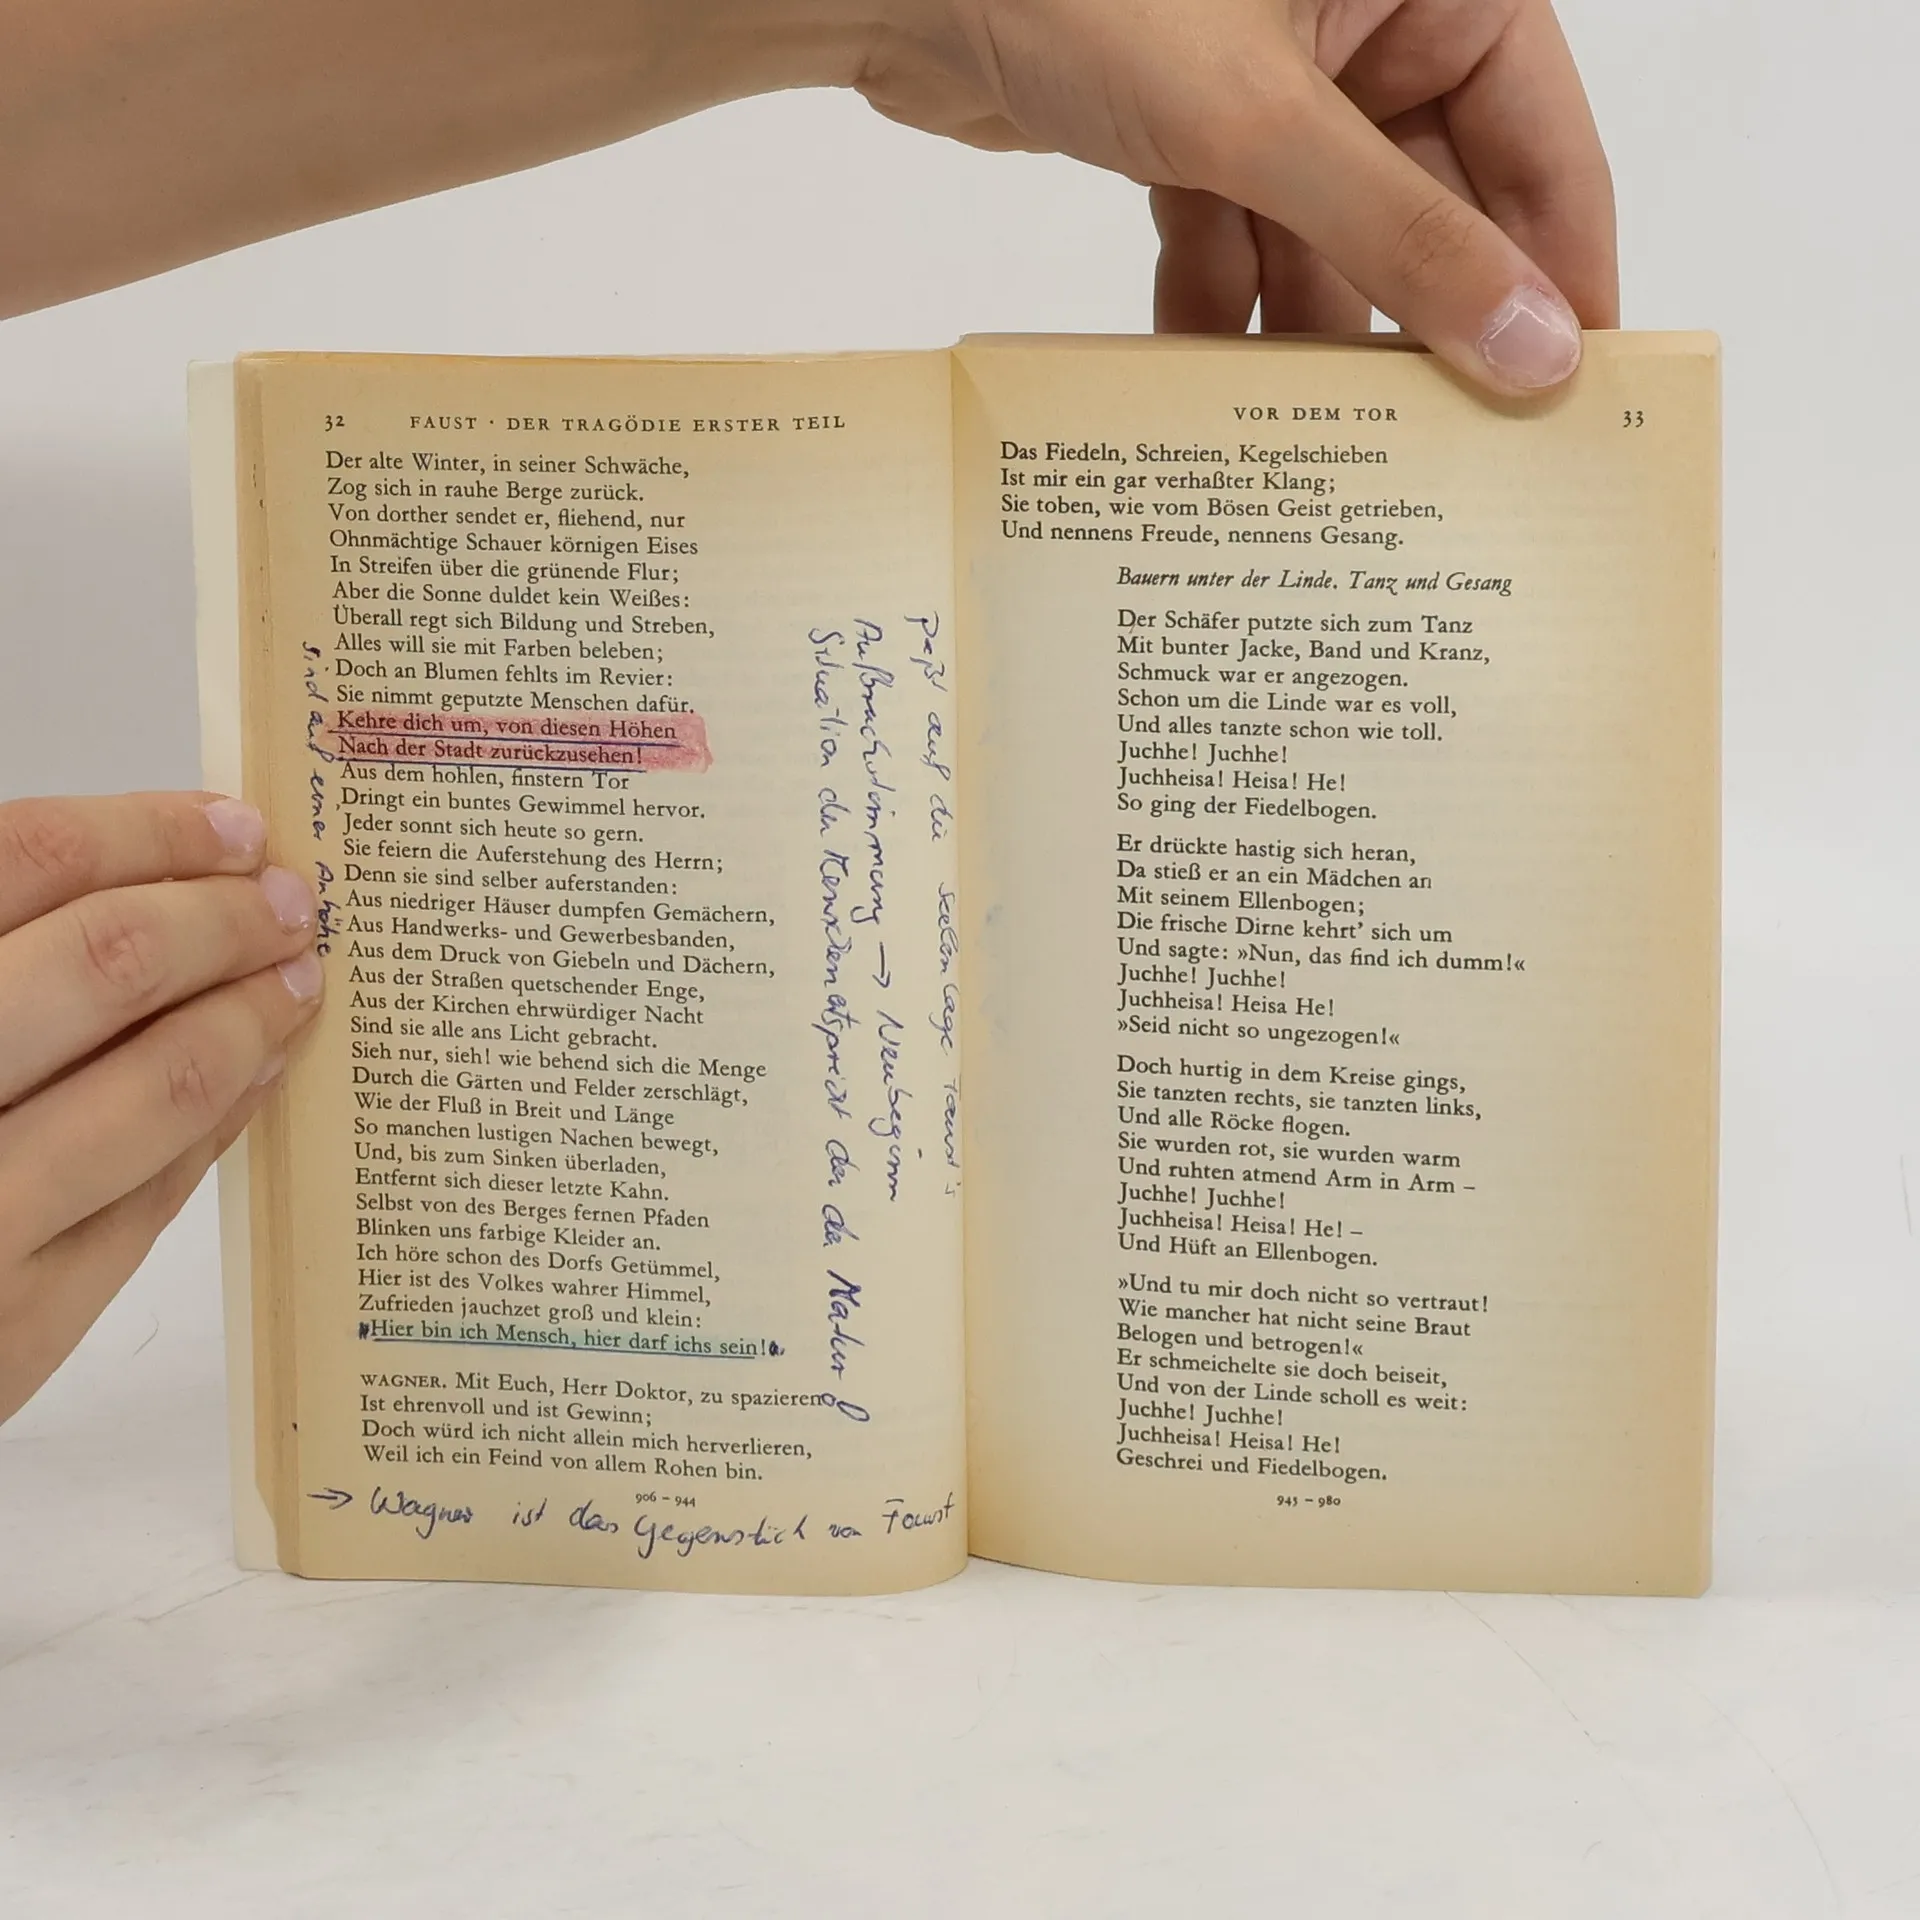 32 FAUST · DER TRAGÖDIE ERSTER TEIL
Der alte Winter, in seiner Schwäche,
Zog sich in rauhe Berge zurück.
Von dorther sendet er, fliehend, nur
Ohnmächtige Schauer körnigen Eises
In Streifen über die grünende Flur;
Aber die Sonne duldet kein Weißes:
Überall regt sich Bildung und Streben,
Alles will sie mit Farben beleben;
Doch an Blumen fehlts im Revier:
Sie nimmt geputzte Menschen dafür.
Kehre dich um, von diesen Höhen
Nach der Stadt zurückzusehen!
Aus dem hohlen, finstern Tor
Dringt ein buntes Gewimmel hervor.
Jeder sonnt sich heute so gern.
Sie feiern die Auferstehung des Herrn;
Denn sie sind selber auferstanden:
Aus niedriger Häuser dumpfen Gemächern,
Aus Handwerks- und Gewerbesbanden,
Aus dem Druck von Giebeln und Dächern,
Aus der Straßen quetschender Enge,
Aus der Kirchen ehrwürdiger Nacht
Sind sie alle ans Licht gebracht.
Sieh nur, sieh! wie behend sich die Menge
Durch die Gärten und Felder zerschlägt,
Wie der Fluß in Breit und Länge
So manchen lustigen Nachen bewegt,
Und, bis zum Sinken überladen,
Entfernt sich dieser letzte Kahn.
Selbst von des Berges fernen Pfaden
Blinken uns farbige Kleider an.
Ich höre schon des Dorfs Getümmel,
Hier ist des Volkes wahrer Himmel,
Zufrieden jauchzet groß und klein:
»Hier bin ich Mensch, hier darf ichs sein!«
WAGNER. Mit Euch, Herr Doktor, zu spazieren
Ist ehrenvoll und ist Gewinn;
Doch würd ich nicht allein mich herverlieren,
Weil ich ein Feind von allem Rohen bin.
906 – 944
→ Wagner ist das Gegenstück von Faust
sind auf einer Anhöhe
paßt auf die Seelenlage Faust's
Aufbruchstimmung → Neubeginn
Situation der Menschen entspricht der der Natur
VOR DEM TOR 33
Das Fiedeln, Schreien, Kegelschieben
Ist mir ein gar verhaßter Klang;
Sie toben, wie vom Bösen Geist getrieben,
Und nennens Freude, nennens Gesang.
Bauern unter der Linde. Tanz und Gesang
Der Schäfer putzte sich zum Tanz
Mit bunter Jacke, Band und Kranz,
Schmuck war er angezogen.
Schon um die Linde war es voll,
Und alles tanzte schon wie toll.
Juchhe! Juchhe!
Juchheisa! Heisa! He!
So ging der Fiedelbogen.
Er drückte hastig sich heran,
Da stieß er an ein Mädchen an
Mit seinem Ellenbogen;
Die frische Dirne kehrt’ sich um
Und sagte: »Nun, das find ich dumm!«
Juchhe! Juchhe!
Juchheisa! Heisa He!
»Seid nicht so ungezogen!«
Doch hurtig in dem Kreise gings,
Sie tanzten rechts, sie tanzten links,
Und alle Röcke flogen.
Sie wurden rot, sie wurden warm
Und ruhten atmend Arm in Arm –
Juchhe! Juchhe!
Juchheisa! Heisa! He! –
Und Hüft an Ellenbogen.
»Und tu mir doch nicht so vertraut!
Wie mancher hat nicht seine Braut
Belogen und betrogen!«
Er schmeichelte sie doch beiseit,
Und von der Linde scholl es weit:
Juchhe! Juchhe!
Juchheisa! Heisa! He!
Geschrei und Fiedelbogen.
945 – 980